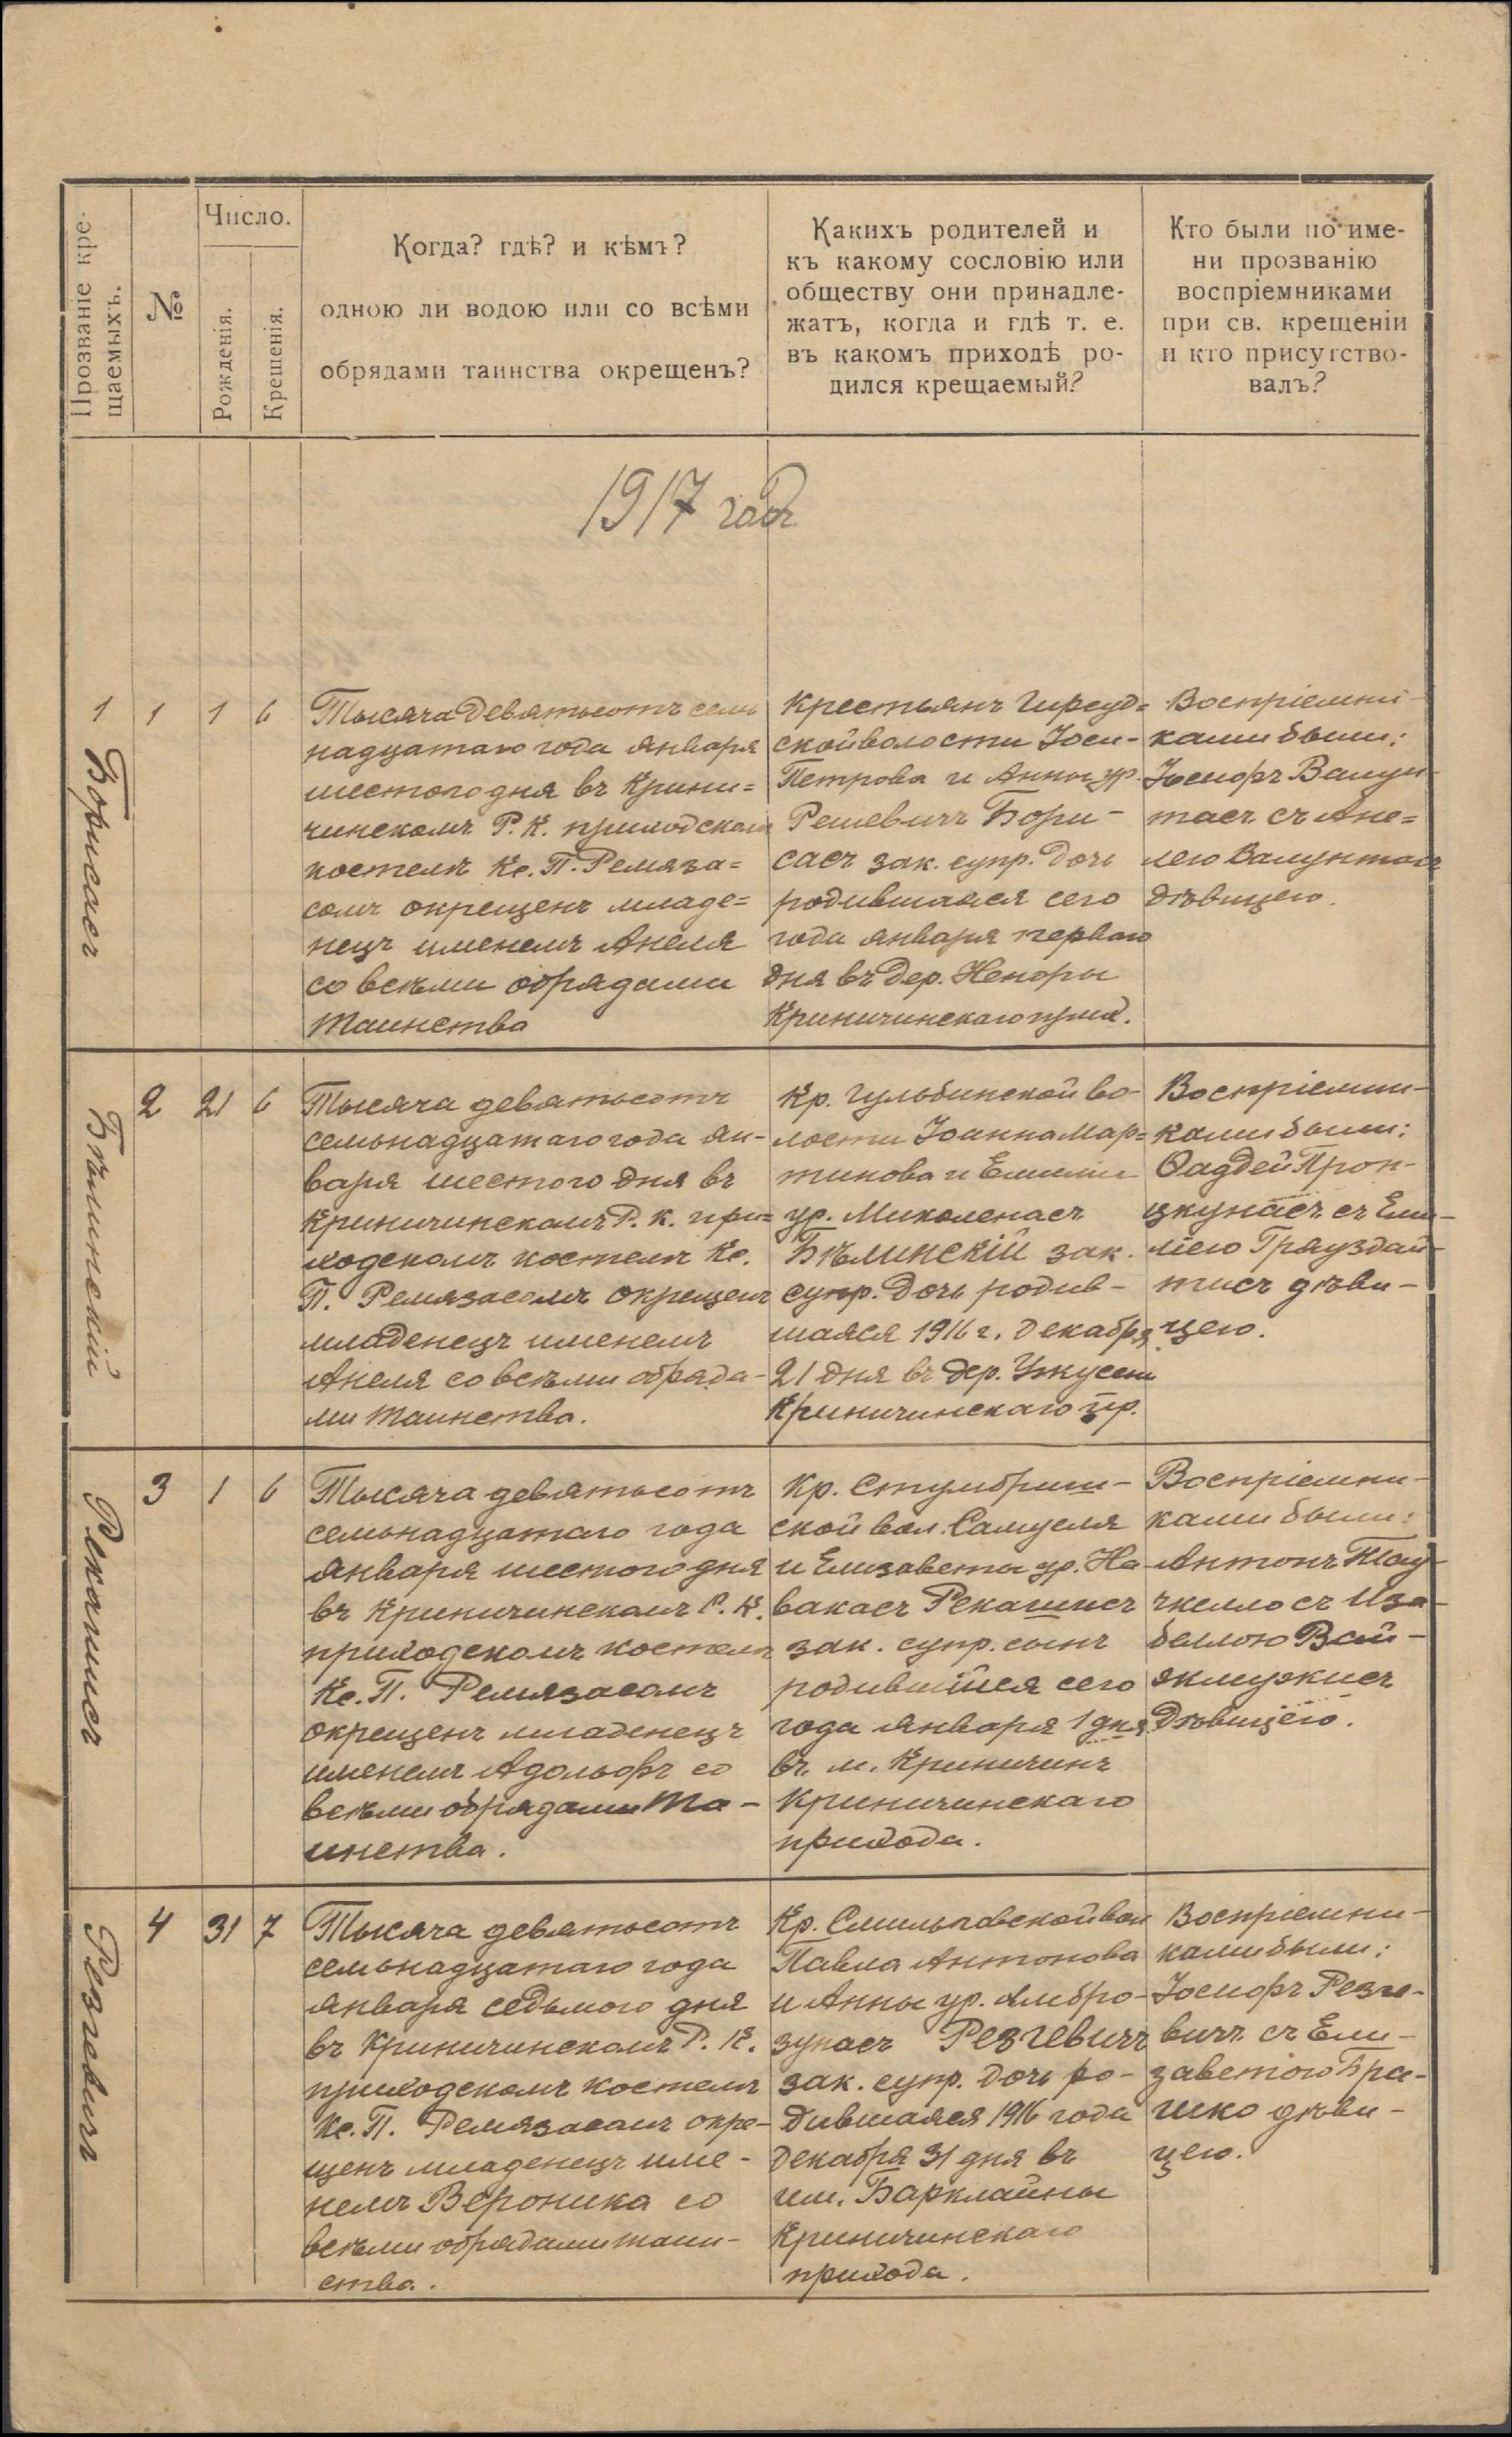 Прозваніе кре-
щаемыхъ.
№
Число.
Рожденія.
Крещенія.
Когда? гдѣ? и кѣмъ?
одною ли водою или со всѣми
обрядами таинства окрещенъ?
Какихъ родителей и
къ какому сословію или
обществу они принадле-
жатъ, когда и гдѣ т. е.
въ какомъ приходѣ ро-
дился крещаемый?
Кто были по име-
ни прозванію
воспріемниками
при св. крещеніи
и кто присутство-
валъ?
1917 годъ
1
Борисасъ
1
1
6
Тысяча девятьсотъ семь
надцатаго года января
шестого дня въ Крини=
чинскомъ Р. К. приходскомъ
костелѣ Кс. П. Ремяза=
сомъ окрещенъ младе=
нецъ именемъ Анеля
со всѣми обрядами
таинства
Крестьянъ Гирсуд=
ской волости Іоси-
Петрова и Анны ур.
Решевичъ Бори-
сасъ зак. супр. дочь
родившаяся сего
года января перваго
дня въ дер. Неноры
Криничинскаго прих.
Воспріемни-
ками были:
Іосифъ Валун-
тасъ съ Ане=
лею Валунтасъ
дѣвицею.
Бѣлинскій
2
21
6
Тысяча девятьсотъ
семьнадцатаго года ян-
варя шестого дня въ
Криничинскомъ Р. К. при=
ходскомъ костелѣ Кс.
П. Ремязасомъ окрещенъ
младенецъ именемъ
Анеля со всѣми обряда-
ми таинства.
Кр. Гульбинской во-
лости Іоанна Мар=
тинова и Емиліи
ур. Миколенасъ
Бѣлинскій зак.
супр. дочь родив-
шаяся 1916 г. декабря
21 дня въ дер. Ужусени
Криничинскаго пр.
Воспріемни-
ками были:
Ѳаддей Прон-
цкунасъ съ Еми-
ліею Грауздай-
тисъ дѣви-
цею.
Рекашисъ
3
1
6
Тысяча девятьсотъ
семьнадцатаго года
января шестого дня
въ Криничинскомъ Р. К.
приходскомъ костелѣ
Кс. П. Ремязасомъ
окрещенъ младенецъ
именемъ Адольфъ со
всѣми обрядами та-
инства.
Кр. Стумбриш-
ской вол. Самуеля
и Елизаветы ур. На-
вакасъ Рекашисъ
зак. супр. сынъ
родившійся сего
года января 1 дня
въ м. Криничинъ
Криничинскаго
прихода.
Воспріемни-
ками были:
Антонъ Тау-
чкелло съ Иза-
беллою Вай-
экмужисъ
дѣвицею.
Резгевичъ
4
31
7
Тысяча девятьсотъ
семьнадцатаго года
января седьмого дня
въ Криничинскомъ Р. К.
приходскомъ костелѣ
Кс. П. Ремязасомъ окре-
щенъ младенецъ име-
немъ Вероника со
всѣми обрядами таин-
ства.
Кр. Смильговской вол
Павла Антонова
и Анны ур. Амбро-
зунасъ Резгевичъ
зак. супр. дочь ро-
дившаяся 1916 года
декабря 31 дня въ
им. Барклайны
Криничинскаго
прихода.
Воспріемни-
ками были:
Іосифъ Резге-
вичъ съ Ели-
заветою Гри-
шко дѣви-
цею.